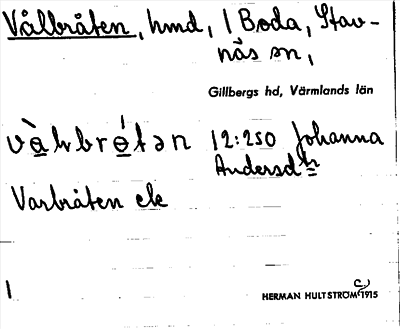 Vålbråten, hmd, 1 Boda, Stav-
näs sn,
Gillbergs hd, Värmlands län
12:250 Johanna
Andersdtr
Varbråten ek
HERMAN HULTSTRÖM 1915